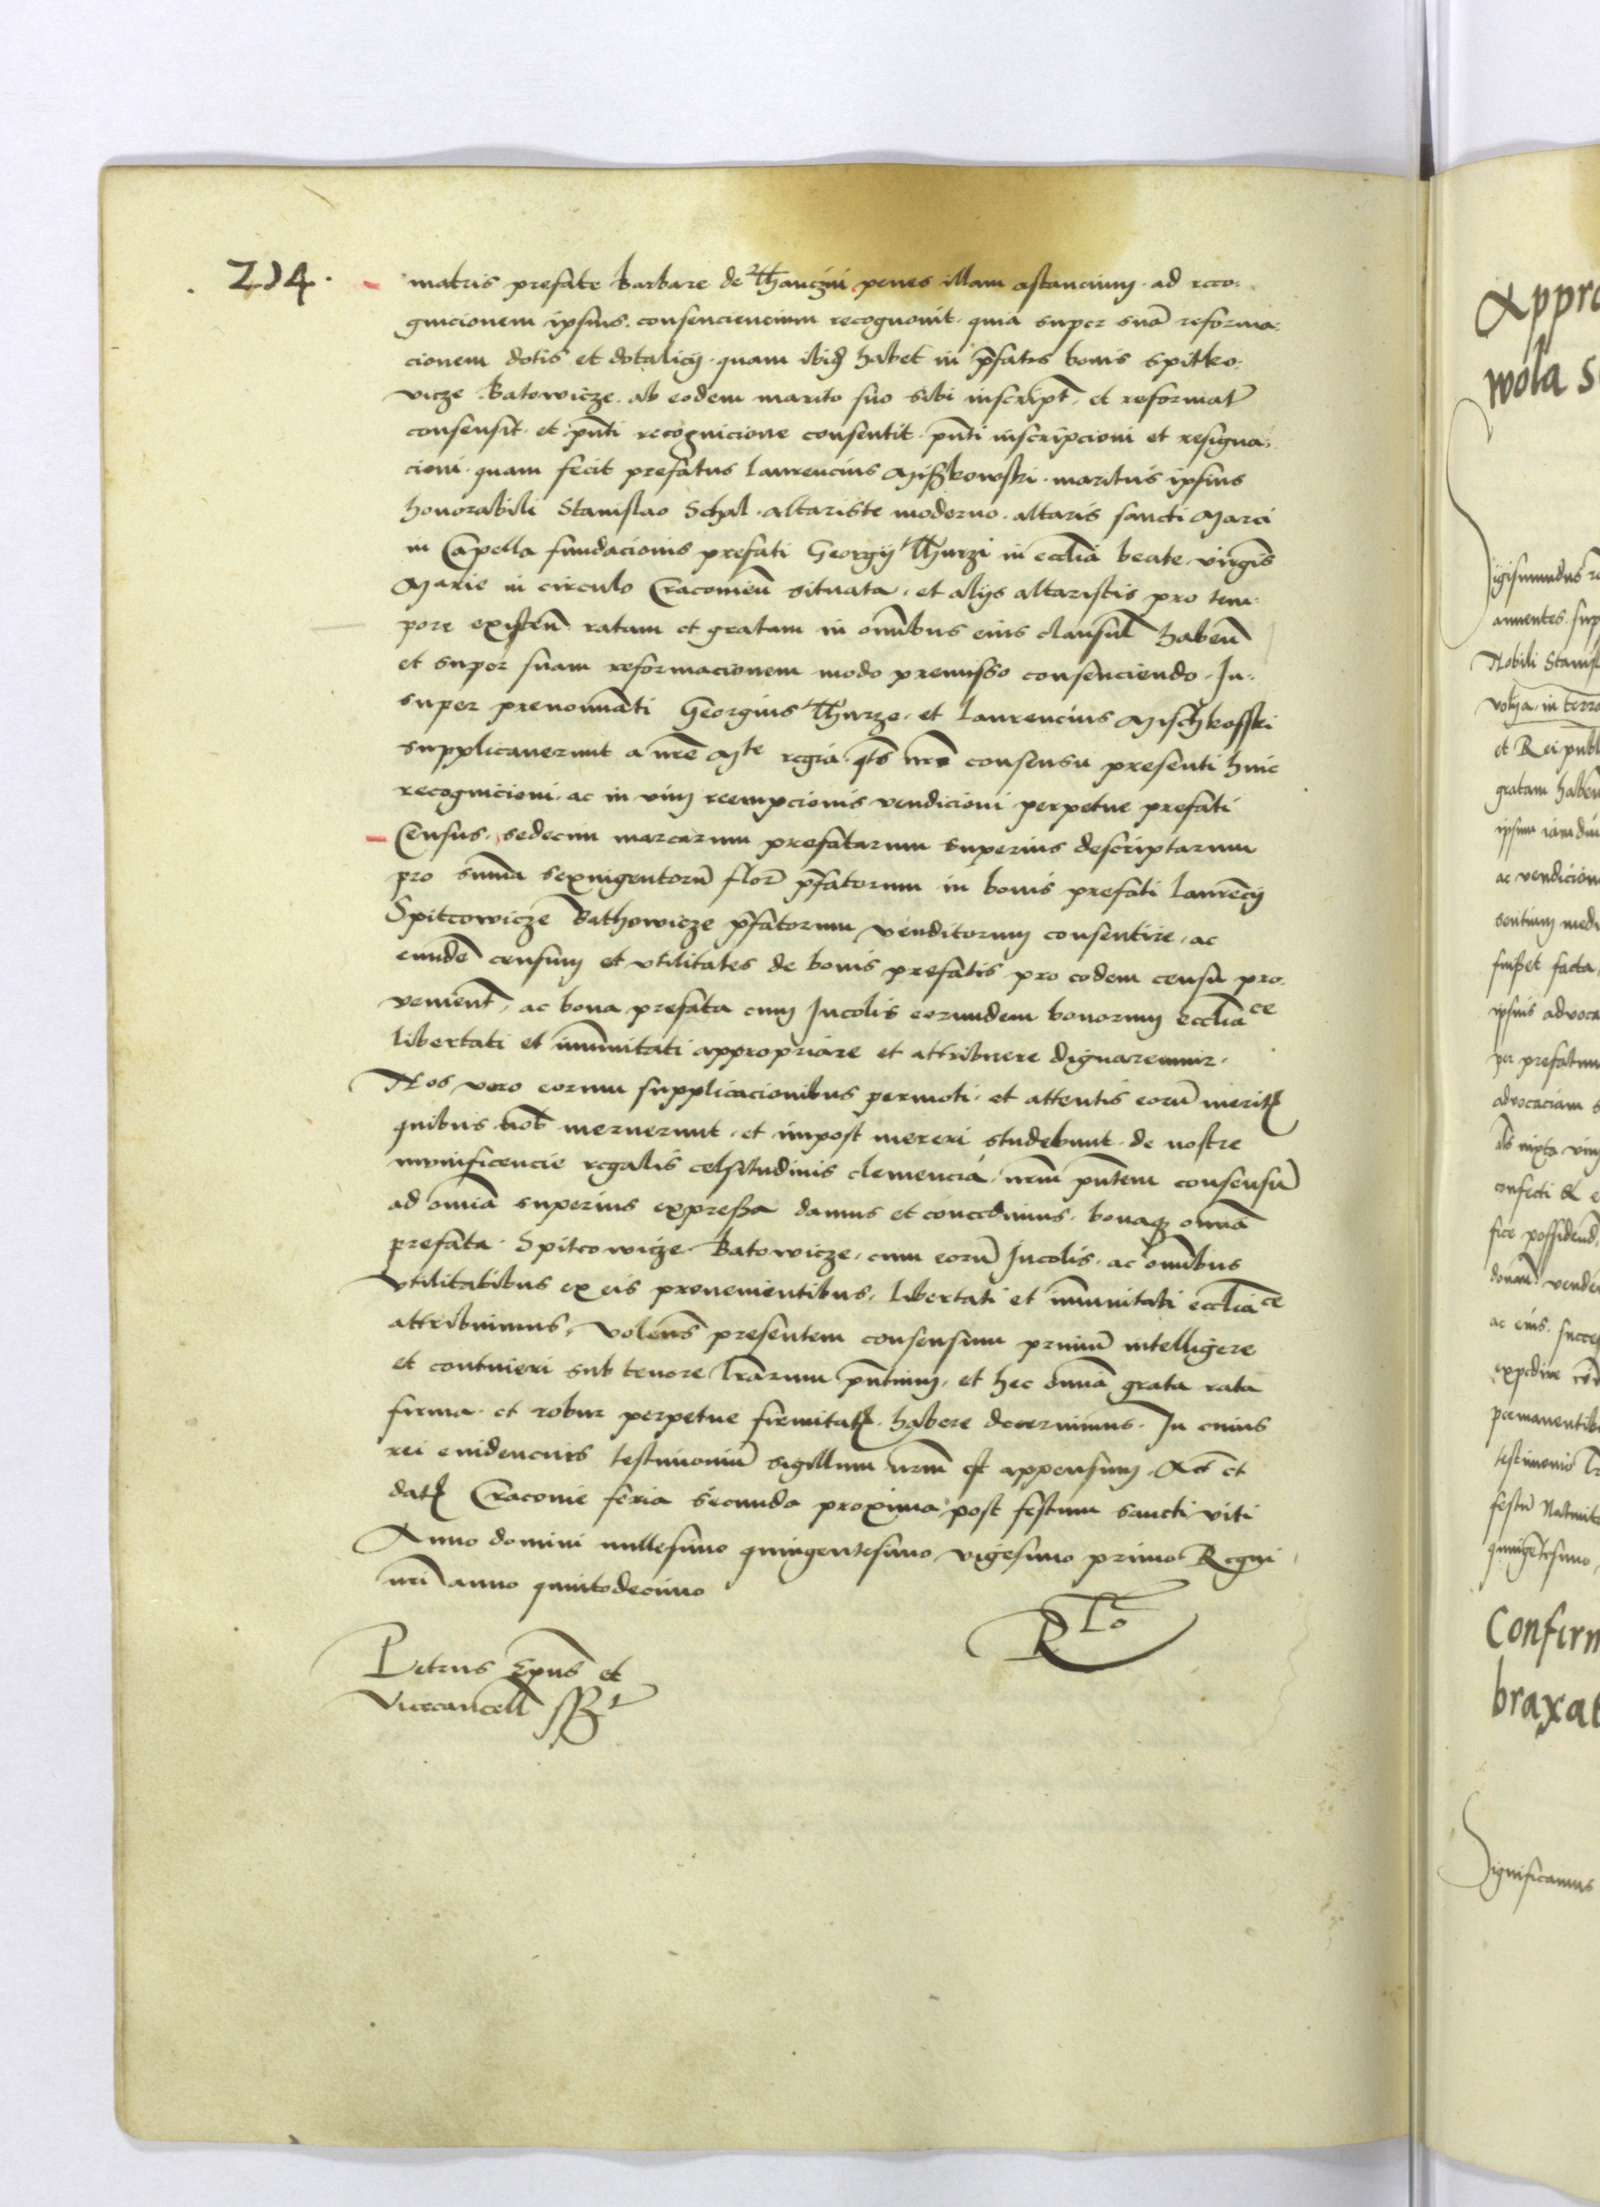 214.
matris prefate Barbare de Thanczin penes illam astancium ad reco-
gnicionem ipsius consenciencium recognovit quia super suā reforma-
cionem dotis et dotalicij quam ibid habet in p̄fatis bonis Spitko-
vicze Batowicze ab eodem marito suo sibi inscript et reformat
consensit et pn̄ti recognicione consentit pn̄ti inscripcioni et resigna-
cioni quam fecit prefatus Laurencius Mißkowski maritus ipsius
honorabili Stanislao Schal altariste moderno altaris sancti Marci
in Capella fundacionis prefati Georgij Thurzi in eccliā beate virgīs
Marie in circulo Cracovieñ situata et alijs altaristis pro tem-
pore existeñ ratam et gratam in om̄ibus eius clausul habeñ
et super suam reformacionem modo premisso consenciendo In-
super prenomīati Georgius Thurzo et Laurencius Mischkosski
supplicaverunt a nr̄e Mte regia q̄ts nr̄o consensu presenti huic
recognicioni ac in vim reempcionis vendicioni perpetue prefati
Census sedecim marcarum prefatarum superius descriptarum
pro summa sexingentorū flor̄ p̄fatorum in bonis prefati Laurēcij
Spitcowicze Bathowicze p̄fatorum venditorum consentire ac
eundē censum et utilitates de bonis prefatis pro eodem censu pro-
venient ac bona prefata cum Incolis eorundem bonorum eccliāce
libertati et im̄unitati appropriare et attribuere dignaremur
Nos vero eorum supplicacionibus permoti et attentis eorū meritꝭ
quibus nob̄ meruerunt et impost mereri studebunt de nostre
munificencie regalis celsitudinis clemencia nr̄m pn̄tem consensū
ad om̄ia superius expreßa damus et concedimus bonaqꝫ om̄ia
prefata Spitcowicze Batowicze cum eorū Incolis ac om̄ibus
Utilitatibus ex eis provenientibus libertati et im̄unitati eccliāce
attribuimus Volens̄ presentem consensum primū intelligere
et contineri sub tenore lr̄arum pn̄tium et hec om̄ia grata rata
firma et robur perpetue firmitatꝭ habere decernimus In cuius
rei evidencius testimoniū sigillum nr̄m est appensum Act et
datꝭ Cracovie feria secunda proxima post festum sancti viti
Anno domini millesimo quingentesimo vigesimo primo Regni
nr̄i anno quintodecimo
Petrus Ep̄us et
Vicecancell sst
Rlo
Appro
wola S
igismundus
annentes sup
Nobili Stanisl
volya in terra
et Rei publ
gratam haben
ipsum iamdiu
ac vendicion
sentium medi
fuißet facta
ipsius advoca
per prefatum
advocaciam s
confecti &
fice possidend
ac eius succes
permanentib
testimonio
festū Nativita
quingētesimo
Confirm
braxat
ignificamus